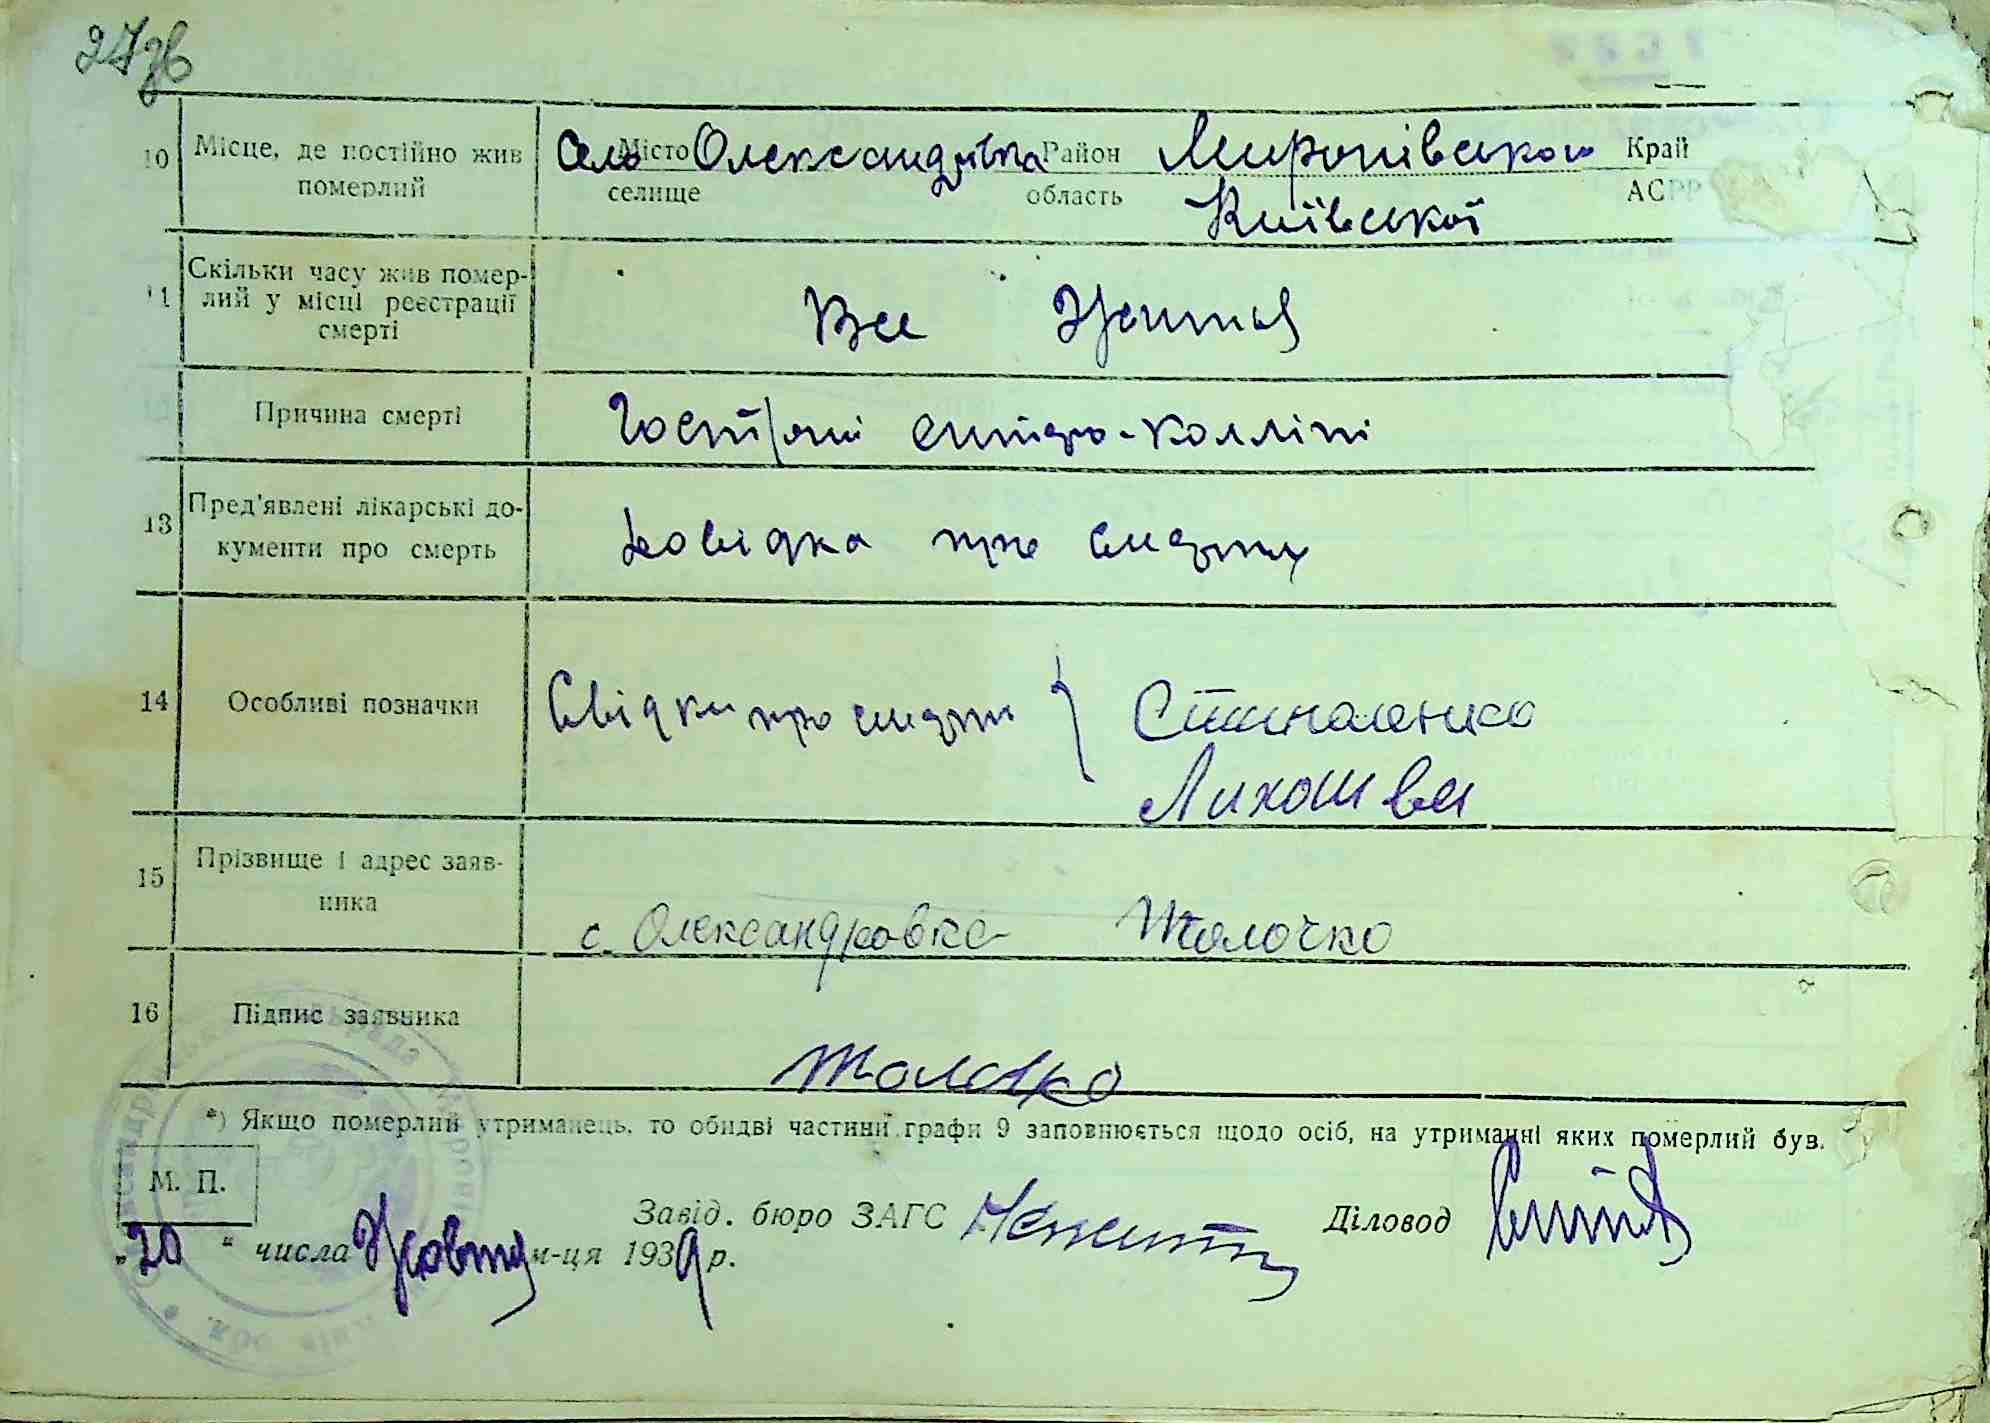 27зв
10 Місце, де постійно жив Село Місто Олександрівка Район Миронівського Край
померлий селище область Київської АСРР
11 Скільки часу жив помер-
лий у місці реєстрації
смерті
Все життя
Причина смерті Гострий ентеро-колліт
13 Пред'явлені лікарські до-
кументи про смерть
Довідка про смерть
14 Особливі позначки Свідки про смерть }
15 Прізвище і адрес заяв-
ника
с. Олександровка Толочко
16 Підпис заявника
Толочко
*) Якщо померлий утриманець, то обидві частини графи 9 заповнюється щодо осіб, на утриманні яких померлий був.
М. П.
Завід. бюро ЗАГС Діловод
„20 “ числа Жовтня м-ця 1939 р.